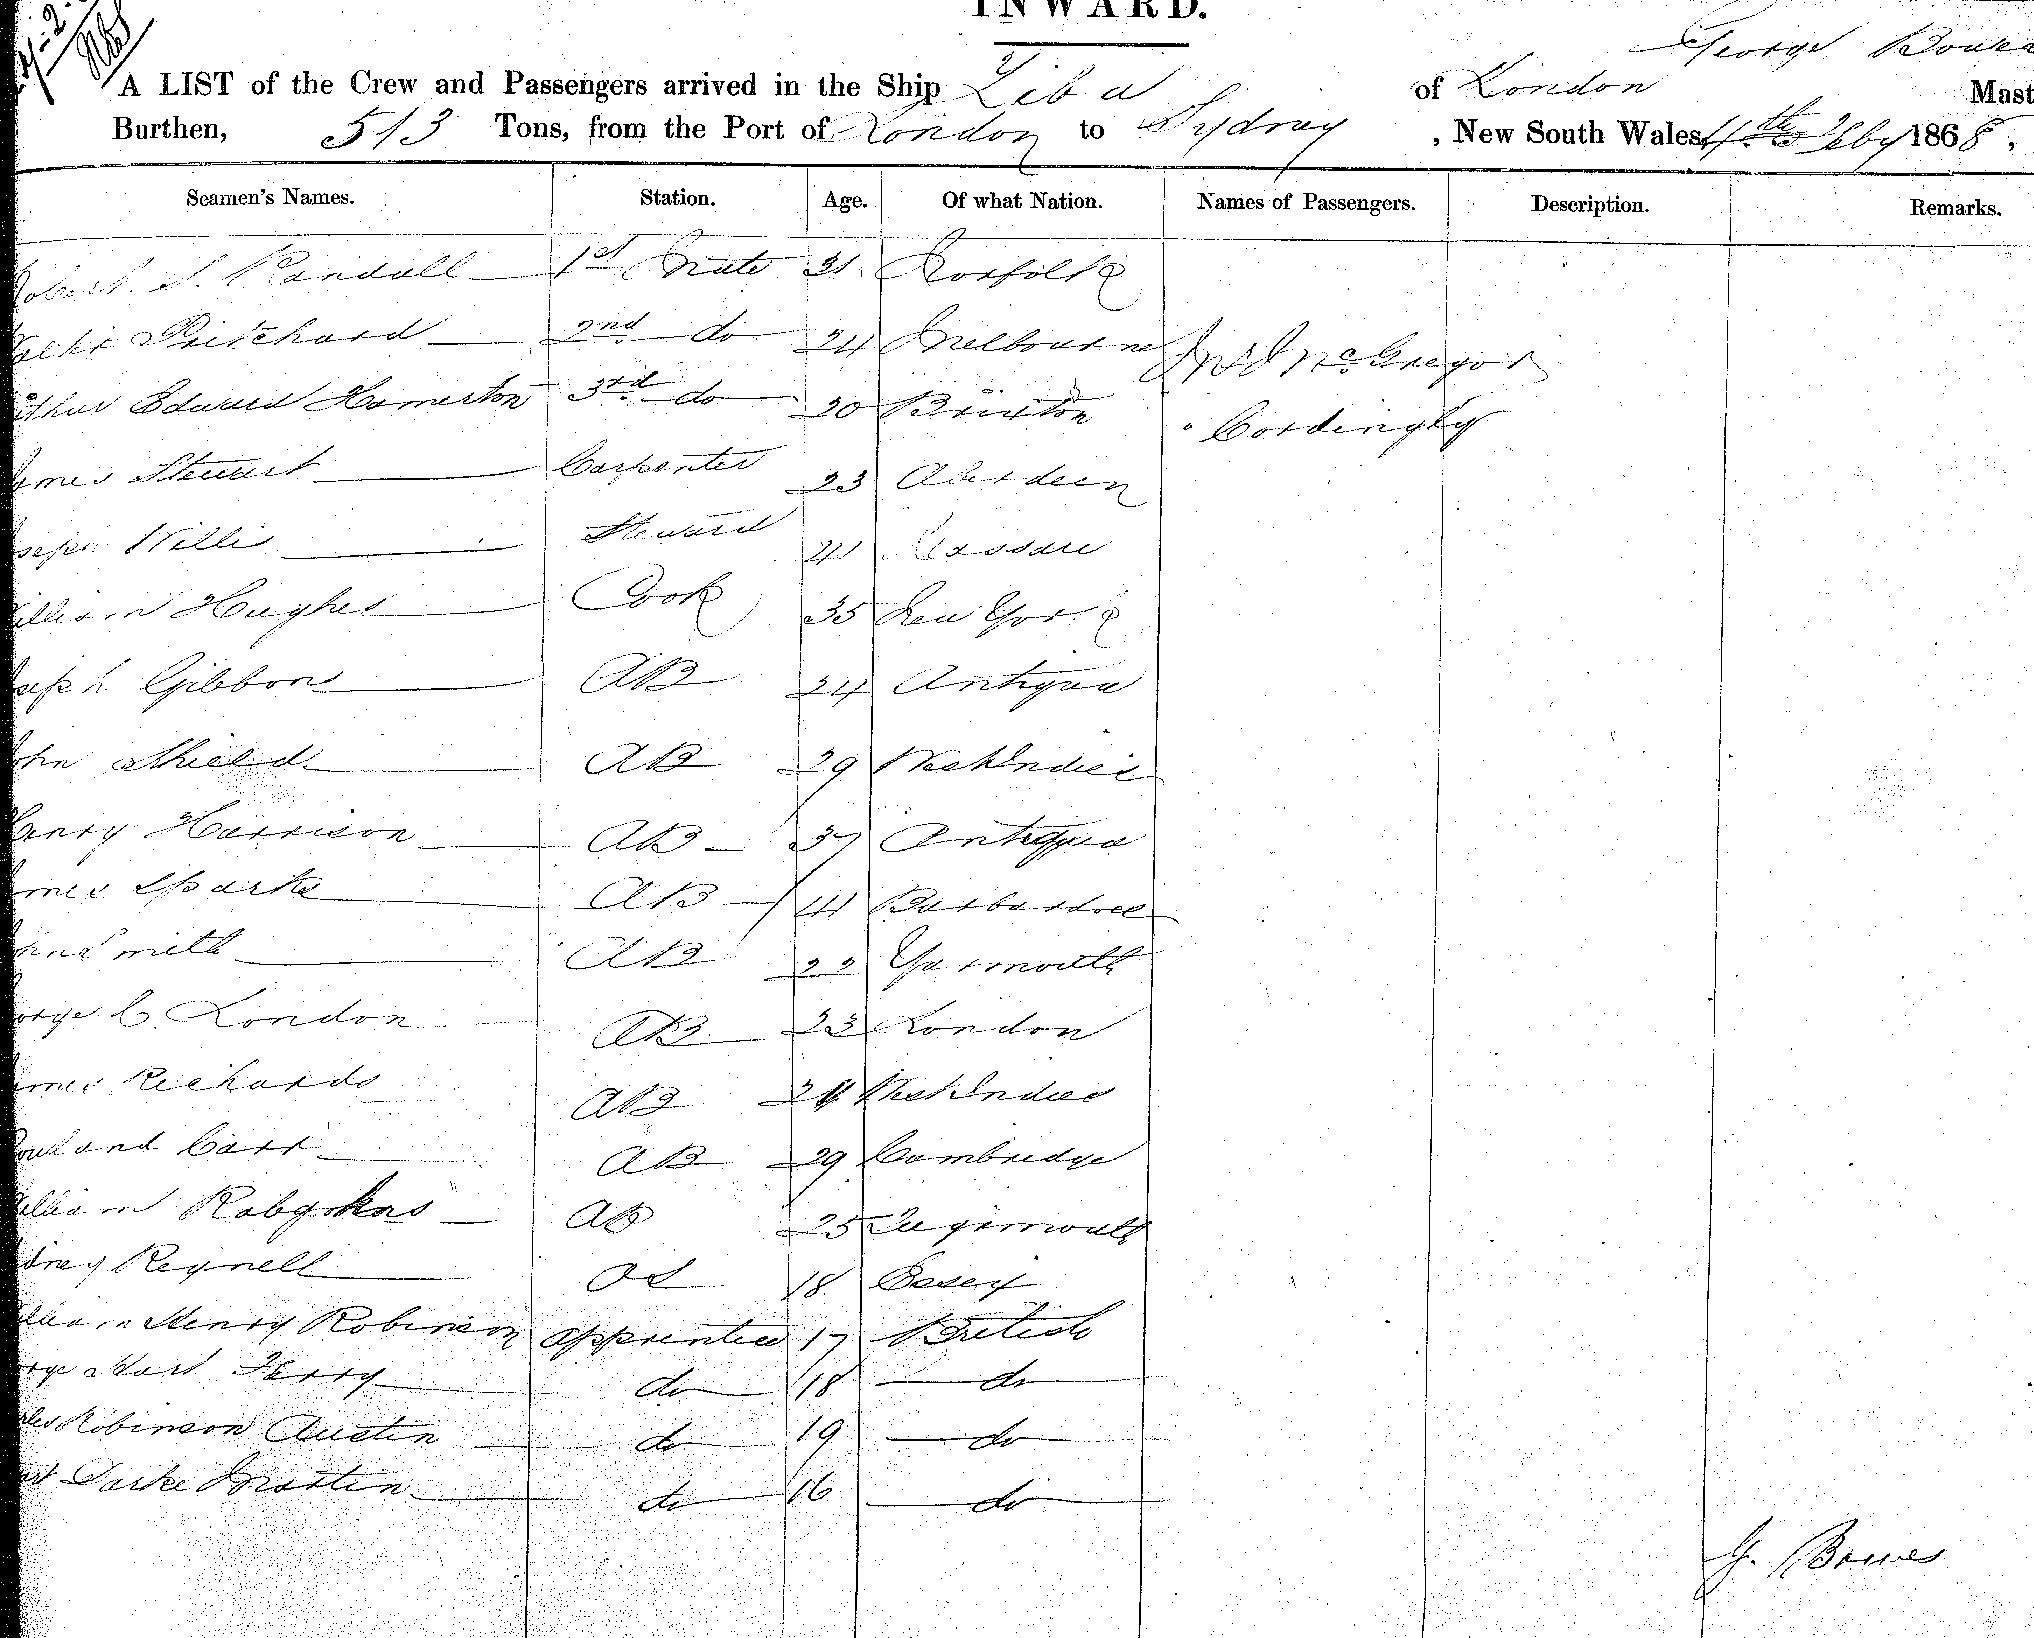 INWARD.
George
A LIST of the Crew and Passengers arrived in the Ship Ziba of London Mast
Burthen, 513 Tons, from the Port of London to Sydney, New South Wales, 11th Feby 1868,
Seamen's Names. Station. Age. Of what Nation. Names of Passengers. Description. Remarks.
Robert. S. Randall 1st Mate 31 Norfolk
Pritchard 2nd do 24 Melbourne
McGregor
thur Edward Hamerton 3rd do 20 Brixton
" Cordingly
ames Stewart Carpenter 23 Aberdeen
oseph Willis Steward 41 Nassau
illiam Hughes Cook 35 New York
oseph Gibbons AB 24 Antigua
ohn Shield AB 29 West Indies
Henry Harrison AB 37 Antigua
ames Sparks AB 41 Barbardoes
ohn Smith AB 22 Yarmouth
eorge C. London AB 23 London
ames Richards AB 24 West Indies
owland Carr AB 29 Cambridge
illiam AB 25 Teignmouth
dney Reynell OS 18 Essex
illiam Henry Robinson apprentice 17 British
orge Hart Terry do 18 do
les Robinson Austin do 19 do
Darke Martin do 16 do
G. Bowes